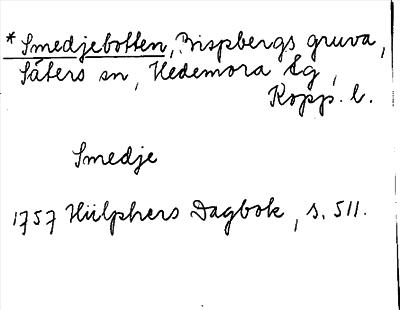 *Smedjebotten, Bispbergs gruva,
Säters sn, Hedemora tg,
Kopp. l.
Smedje
1757 Hülphers Dagbok, s. 511.